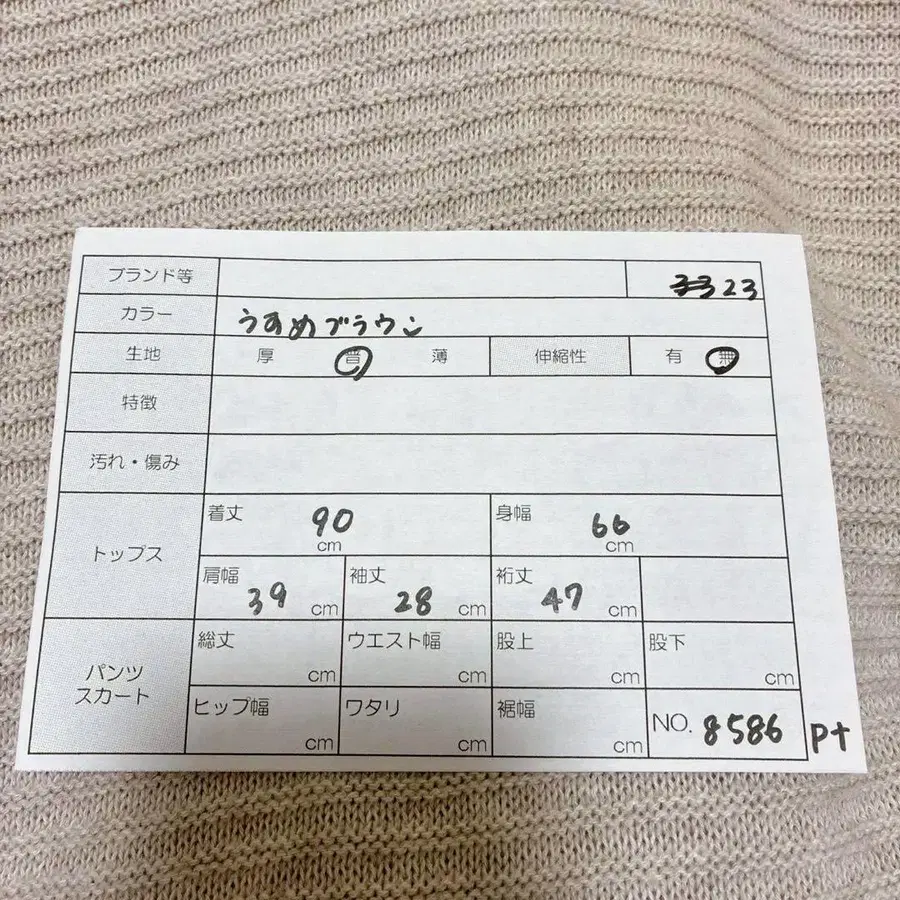 ブランド等 23
カラー うすめブラウン
生地 厚 普 薄 伸縮性 有 無
特徴
汚れ・傷み
トップス
着丈 90 cm 身幅 66 cm
肩幅 39 cm 袖丈 28 cm 裄丈 47 cm
パンツ
スカート
総丈 cm ウエスト幅 cm 股上 cm 股下 cm
ヒップ幅 cm ワタリ cm 裾幅 cm NO. 8586 Pt